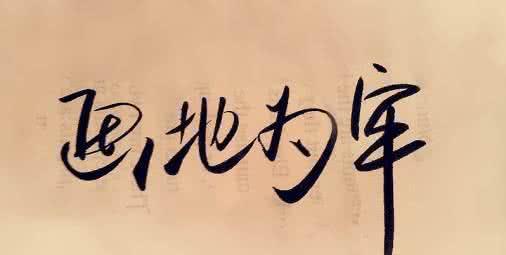 画地为牢